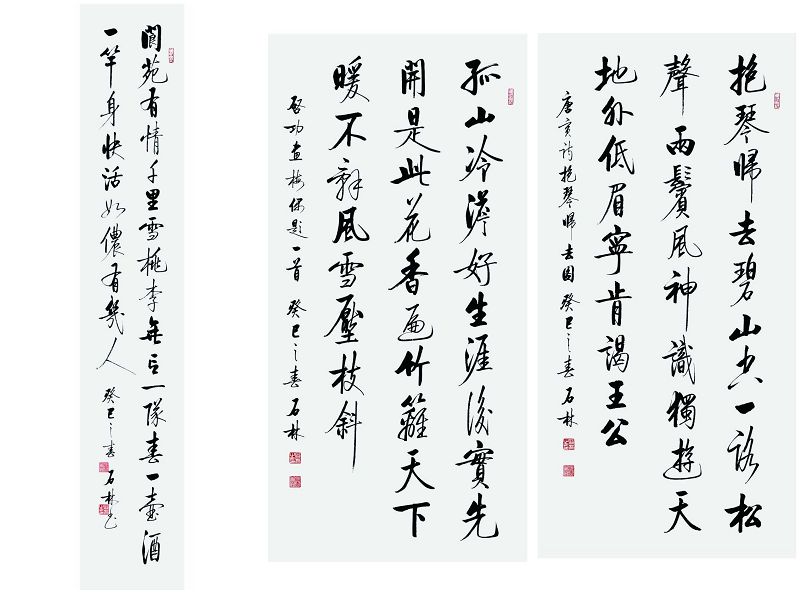 抱琴歸去碧山空一路松
聲兩鬢風神識獨遊天
地外低眉寧肯謁王公
唐寅詩抱琴歸去圖癸巳之春石林
孤山冷淡好生涯後實先
開是此花香遍竹籬天下
暖不辭風雪壓枝斜
啓功畫梅偶題一首癸巳之春石林
閬苑有情千里雪桃李無言一隊春一壺酒
一竿身快活如儂有幾人
癸巳之春石林書